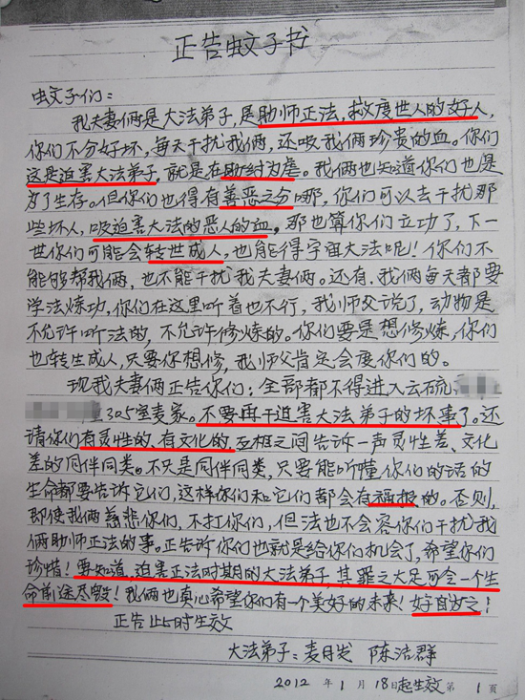 正告蚊子书
蚊子们：
我夫妻俩是大法弟子，是助师正法，救度世人的好人，
你们不分好坏，每天干扰我俩，还吸我俩珍贵的血。你们
这是迫害大法弟子，就是在助纣为虐。我俩也知道你们也是
为了生存。但你们也得有善恶之分哪，你们可以去干扰那
些坏人，吸迫害大法的恶人的血，那也算你们立功了，下一
世你们可能会转世成人，也能得宇宙大法呢！你们不
能够帮我俩，也不能干扰我夫妻俩。还有，我俩每天都要
学法炼功，你们在这里听着也不行，我师父说了，动物是
不允许听法的，不允许修炼的。你们要是想修炼，你们
也转生成人，只要你想修，我师父肯定会度你们的。
现我夫妻俩正告你们：全部都不得进入云硫
305室麦家。不要再干迫害大法弟子的坏事了。还
请你们有灵性的、有文化的，互相之间告诉一声灵性差、文化
差的同伴同类。不只是同伴同类，只要能听懂你们的话的
生命都要告诉它们，这样你们和它们都会有福报的。否则，
即使我俩慈悲你们，不打你们，但法也不会容你们干扰我
俩助师正法的事。正告诉你们也就是给你们机会了，希望你们
珍惜！要知道，迫害正法时期的大法弟子，其罪之大足可令一个生
命前途尽毁！我俩也真心希望你们有一个美好的未来！好自为之！
正告即时生效
大法弟子：麦月发 陈洁群
2012年1月18日起生效 第1頁